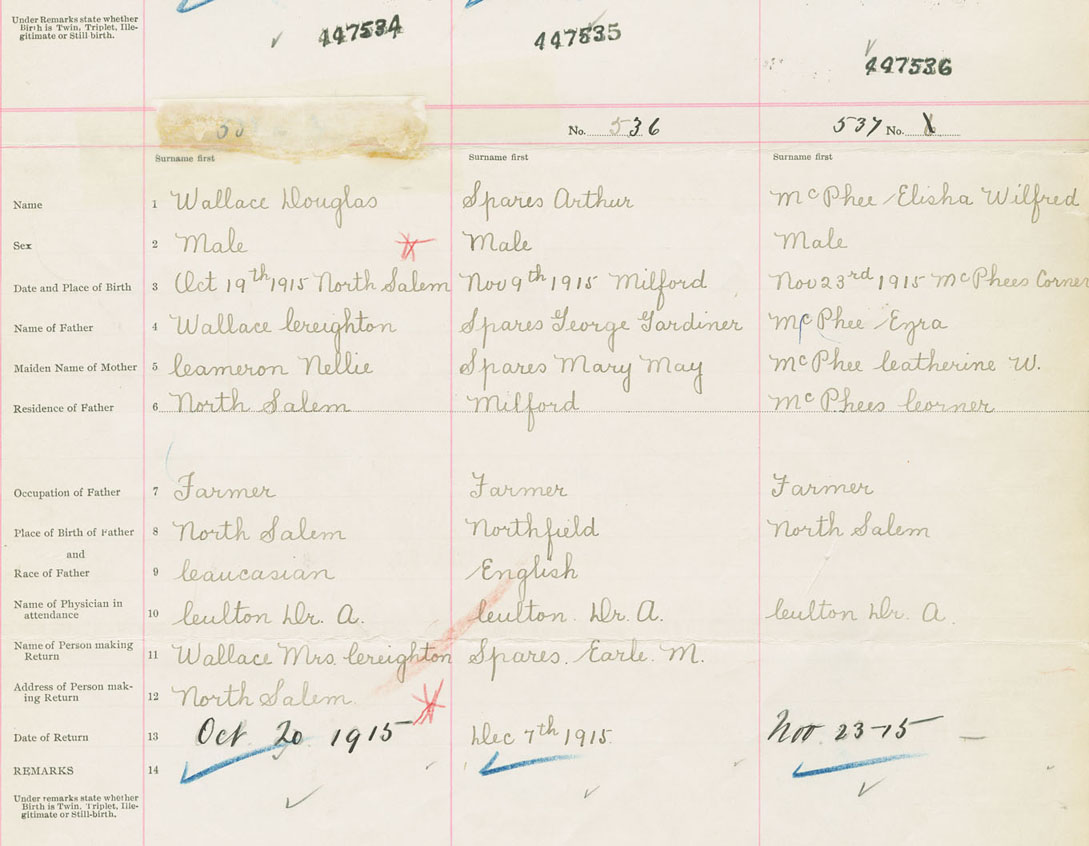 Under Remarks state whether
Birth is Twin, Triplet, Ille-
gitimate or Still birth.
447534 447535 447536
No. 536 537 No. 1
Surname first Surname first Surname first
Name 1 Wallace Douglas Spares Arthur McPhee Elisha Wilfred
Sex 2 Male Male Male
Date and Place of Birth 3 Oct 19th 1915 North Salem Nov 9th 1915 Milford Nov 23rd 1915 McPhees Corner
Name of Father 4 Wallace Creighton Spares George Gardiner McPhee Ezra
Maiden Name of Mother 5 Cameron Nellie Spares Mary May McPhee Catherine W.
Residence of Father 6 North Salem Milford McPhees Corner
Occupation of Father 7 Farmer Farmer Farmer
Place of Birth of Father 8 North Salem Northfield North Salem
and
Race of Father 9 Caucasian English
Name of Physician in
attendance 10 Culton Dr. A. Culton. Dr. A. Culton Dr. A.
Name of Person making
Return 11 Wallace Mrs. Creighton Spares. Earle. M.
Address of Person mak-
ing Return 12 North Salem.
Date of Return 13 Oct 20 1915 Dec 7th 1915. Nov. 23-15
REMARKS 14
Under remarks state whether
Birth is Twin, Triplet, Ille-
gitimate or Still-birth.